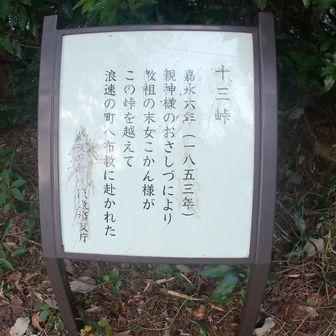 十三峠
嘉永六年（一八五三年）
親神様のおさしづにより
教祖の末女こかん様が
この峠を越えて
浪速の町へ布教に赴かれた